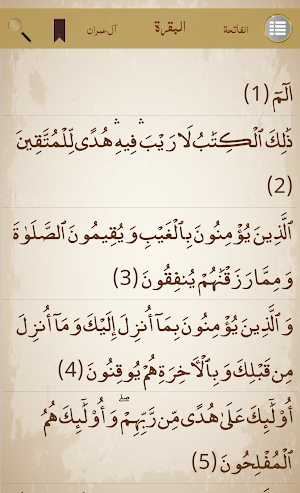 الفاتحة البقرة آل عمران
الٓمٓ (1)
ذَٰلِكَ ٱلْكِتَٰبُ لَا رَيْبَ ۛ فِيهِ ۛ هُدًى لِّلْمُتَّقِينَ
(2)
ٱلَّذِينَ يُؤْمِنُونَ بِٱلْغَيْبِ وَ يُقِيمُونَ ٱلصَّلَوٰةَ
وَ مِمَّا رَزَقْنَٰهُمْ يُنفِقُونَ (3)
وَ ٱلَّذِينَ يُؤْمِنُونَ بِمَآ أُنزِلَ إِلَيْكَ وَ مَآ أُنزِلَ
مِن قَبْلِكَ وَ بِٱلْءَاخِرَةِ هُمْ يُوقِنُونَ (4)
أُو۟لَٰٓئِكَ عَلَىٰ هُدًى مِّن رَّبِّهِمْ ۖ وَ أُو۟لَٰٓئِكَ هُمُ
ٱلْمُفْلِحُونَ (5)